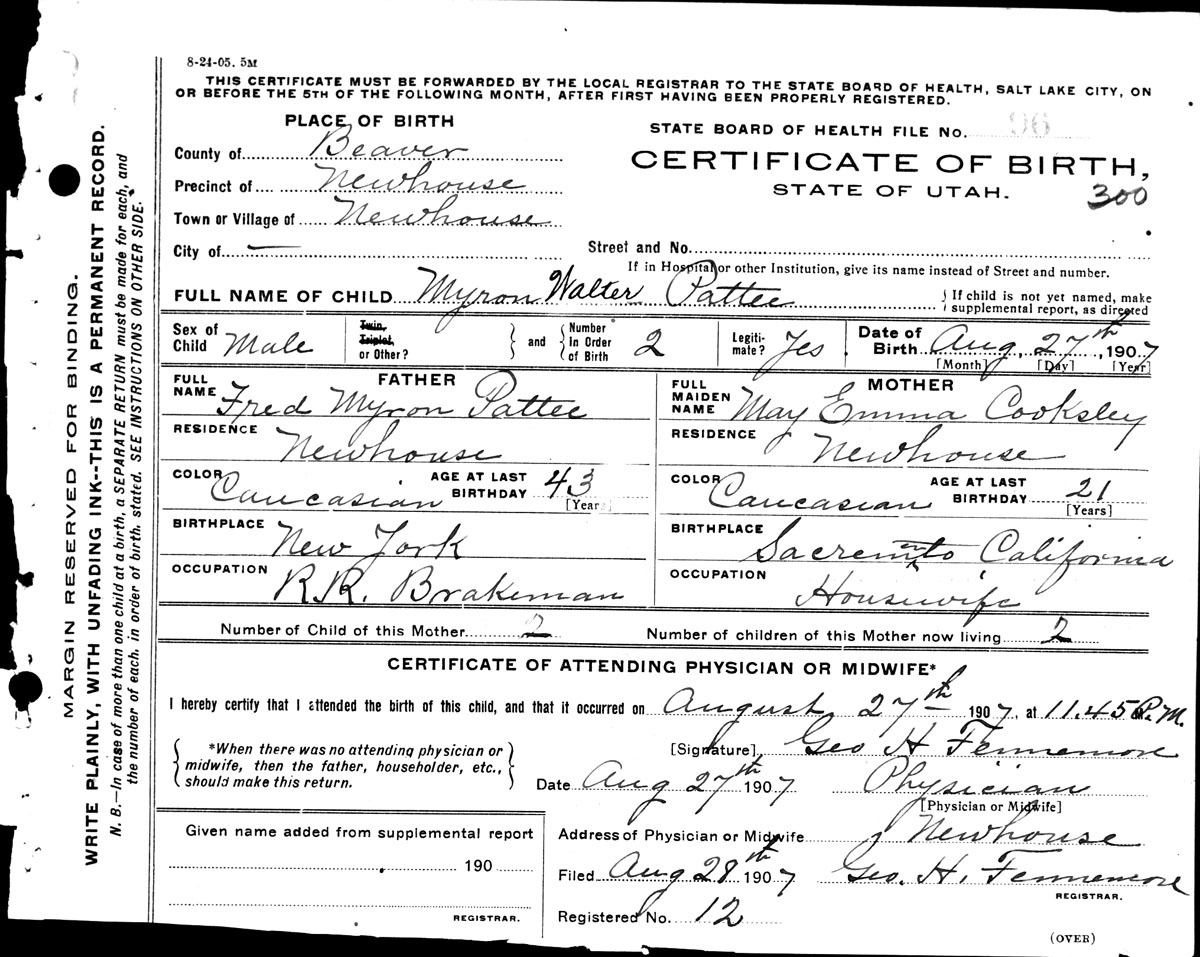 8-24-05. 5M
THIS CERTIFICATE MUST BE FORWARDED BY THE LOCAL REGISTRAR TO THE STATE BOARD OF HEALTH, SALT LAKE CITY, ON
OR BEFORE THE 5TH OF THE FOLLOWING MONTH, AFTER FIRST HAVING BEEN PROPERLY REGISTERED.
PLACE OF BIRTH
STATE BOARD OF HEALTH FILE No. 96
County of Beaver
CERTIFICATE OF BIRTH,
Precinct of Newhouse
STATE OF UTAH. 300
Town or Village of Newhouse
City of —
Street and No.
If in Hospital or other Institution, give its name instead of Street and number.
FULL NAME OF CHILD Myron Walter Pattee
{ If child is not yet named, make
supplemental report, as directed
Sex of Child Male
Twin, Triplet, or Other?
} and { Number In Order of Birth 2
Legiti-mate? Yes
Date of Birth Aug. 27th, 1907
[Month] [Day] [Year]
FATHER
FULL NAME Fred Myron Pattee
RESIDENCE Newhouse
COLOR Caucasian AGE AT LAST BIRTHDAY 43
[Years]
BIRTHPLACE New York
OCCUPATION R.R. Brakeman
MOTHER
FULL MAIDEN NAME May Emma Cooksley
RESIDENCE Newhouse
COLOR Caucasian AGE AT LAST BIRTHDAY 21
[Years]
BIRTHPLACE Sacremento California
OCCUPATION Housewife
Number of Child of this Mother 2 Number of children of this Mother now living 2
CERTIFICATE OF ATTENDING PHYSICIAN OR MIDWIFE*
I hereby certify that I attended the birth of this child, and that it occurred on August 27th 1907, at 11.45 P.M.
{ *When there was no attending physician or
midwife, then the father, householder, etc.,
should make this return. }
[Signature] Geo H Fennemore
Date Aug 27th 1907 Physician
[Physician or Midwife]
Given name added from supplemental report
190
REGISTRAR.
Address of Physician or Midwife Newhouse
Filed Aug 28th 1907 Geo. H. Fennemore
REGISTRAR.
Registered No. 12
(OVER)
MARGIN RESERVED FOR BINDING.
WRITE PLAINLY, WITH UNFADING INK--THIS IS A PERMANENT RECORD.
N. B.—In case of more than one child at a birth, a SEPARATE RETURN must be made for each, and
the number of each, in order of birth, stated. SEE INSTRUCTIONS ON OTHER SIDE.